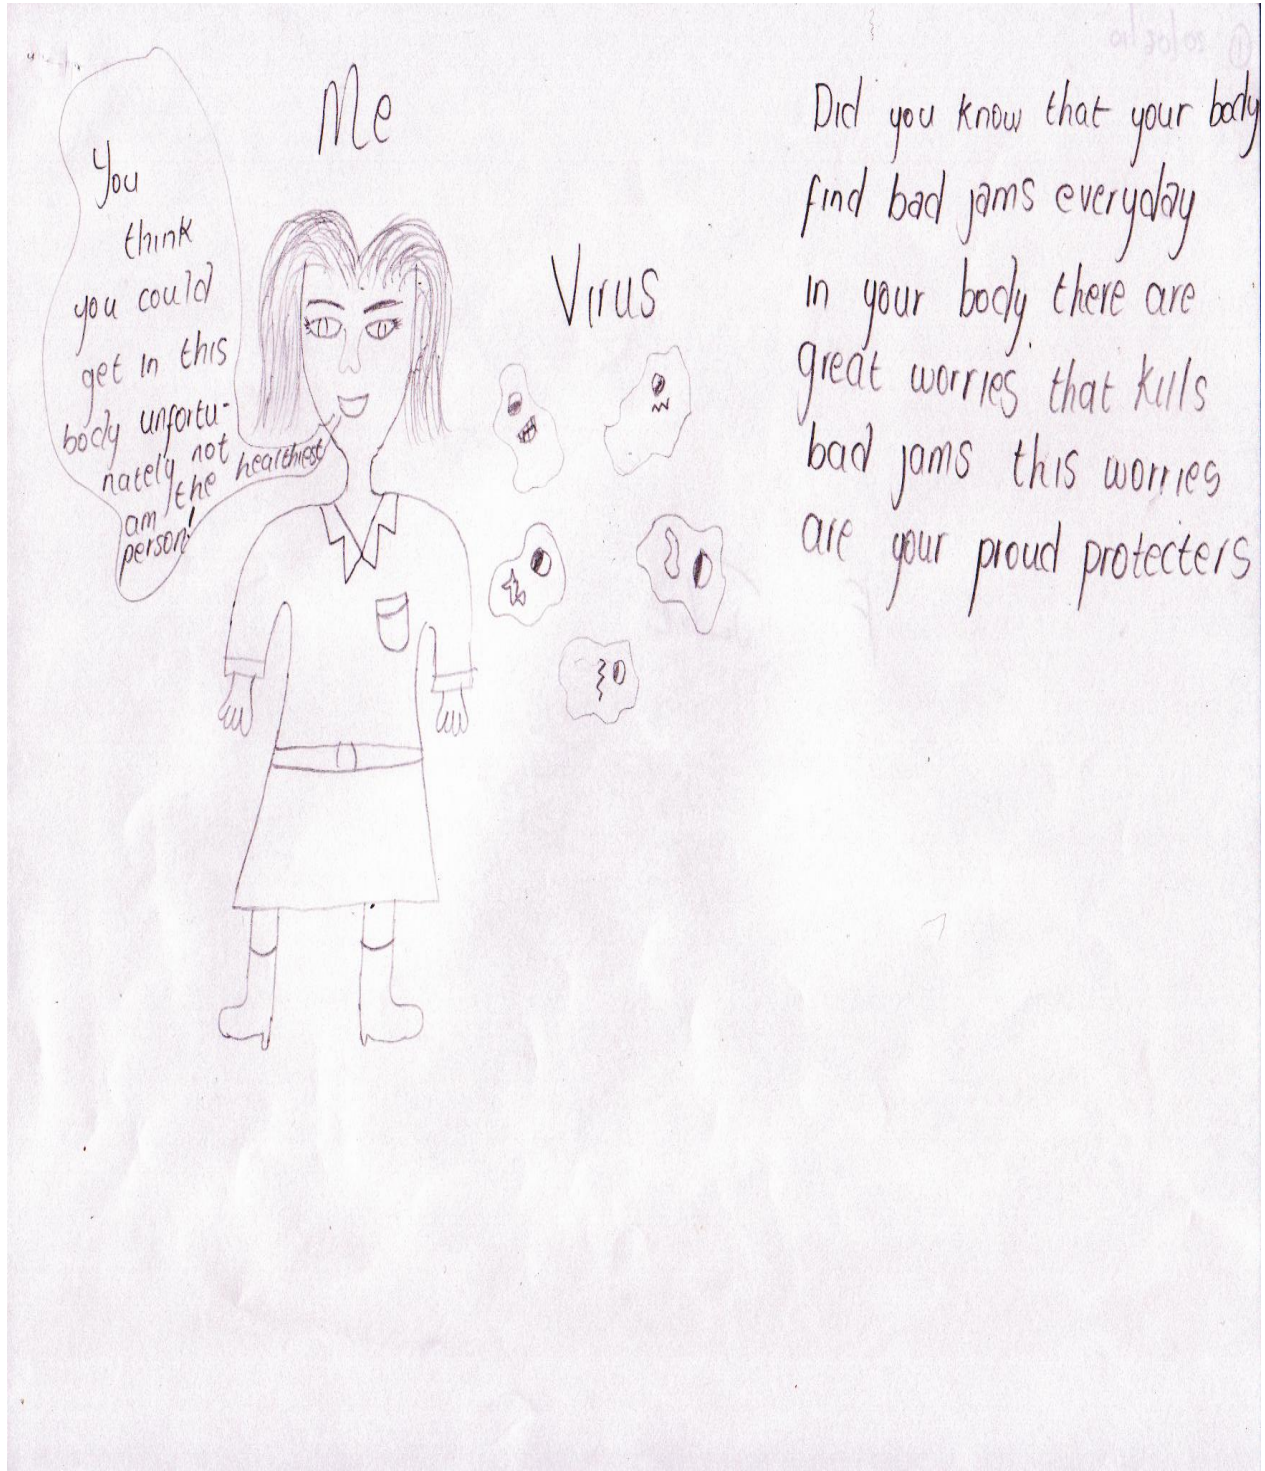 Me
You
think
you could
get in this
body unfortu-
nately not
am the healthiest
person!
Virus
Did you know that your body
find bad jams everyday
in your body there are
great worries that kills
bad jams this worries
are your proud protecters
① 20/06/10